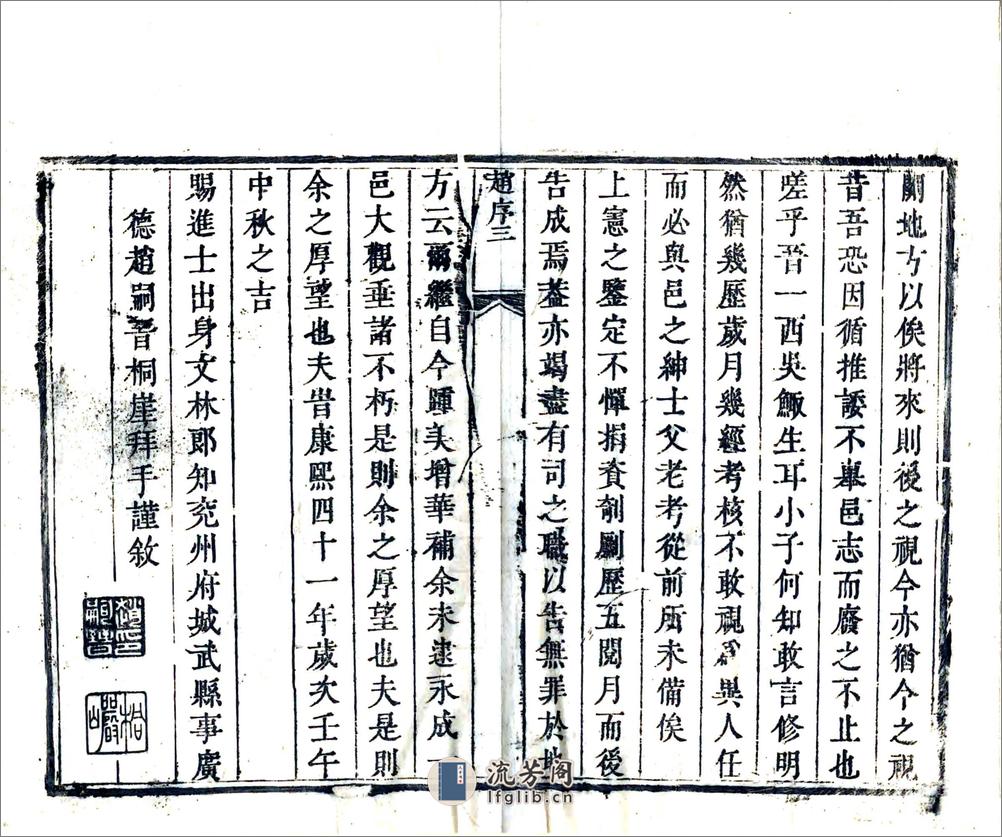 闕地方以俟將來則後之視今亦猶今之視
昔吾恐因循推諉不舉邑志而廢之不止也
嗟乎晋一西吳鯫生耳小子何知敢言修明
然猶幾歷歲月幾經考核不敢視為異人任
而必與邑之紳士父老考從前所未備俟
上憲之鑒定不憚捐資剞劂歷五閱月而後
告成焉葢亦竭盡有司之職以告無罪於地
趙序三
方云爾繼自今踵美增華補余未逮永成一
邑大觀垂諸不朽是則余之厚望也夫是則
余之厚望也夫旹康熙四十一年歲次壬午
中秋之吉
賜進士出身文林郎知兖州府城武縣事廣
德趙嗣晋桐崖拜手謹敘
趙嗣晋印
桐巖
流芳阁
lfglib.cn